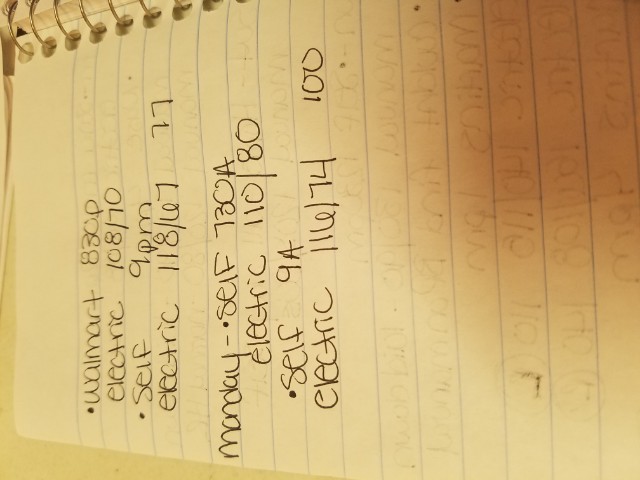 • Walmart 830p
electric 108/70
• Self 9pm
electric 118/67 77
Monday - • Self 730A
electric 110/80
• Self 9A
electric 116/74 100